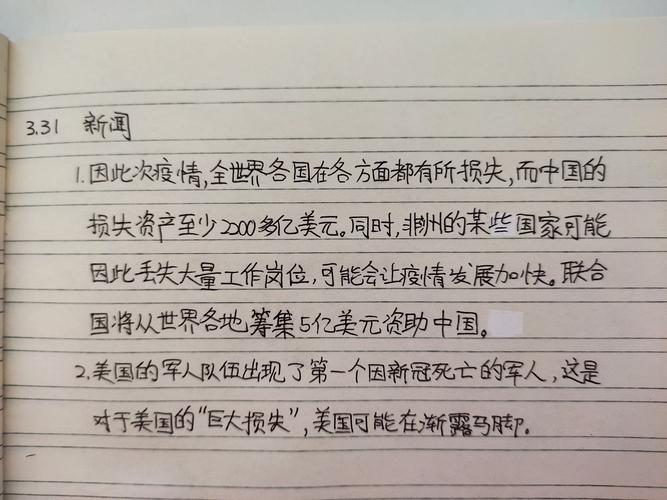 3.31 新闻
1.因此次疫情,全世界各国在各方面都有所损失,而中国的
损失资产至少2000多亿美元。同时,非洲的某些国家可能
因此丢失大量工作岗位,可能会让疫情发展加快。联合
国将从世界各地筹集5亿美元资助中国。
2.美国的军人队伍出现了第一个因新冠死亡的军人,这是
对于美国的“巨大损失”,美国可能在渐露马脚.